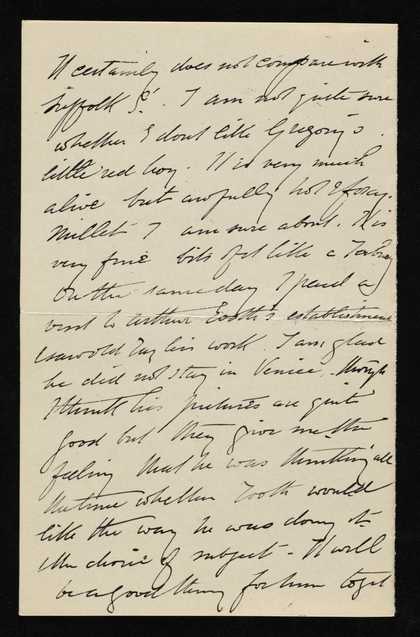 It certainly does not compare with
Suffolk St. I am not quite sure
whether I dont like Gregory's
little red boy. It is very much
alive but awfully hot & foxy.
Millet I am sure about. It is
very fine bits of it like a
On the same day I paid a
visit to Arthur Tooth's establishment
& saw old Tag his work. I am glad
he did not stay in Venice, though
I think his pictures are quite
good but they give me the
feeling that he was thinking all
the time whether Tooth would
like the way he was doing it
& the choice of subject - It will
be a good thing for him to get